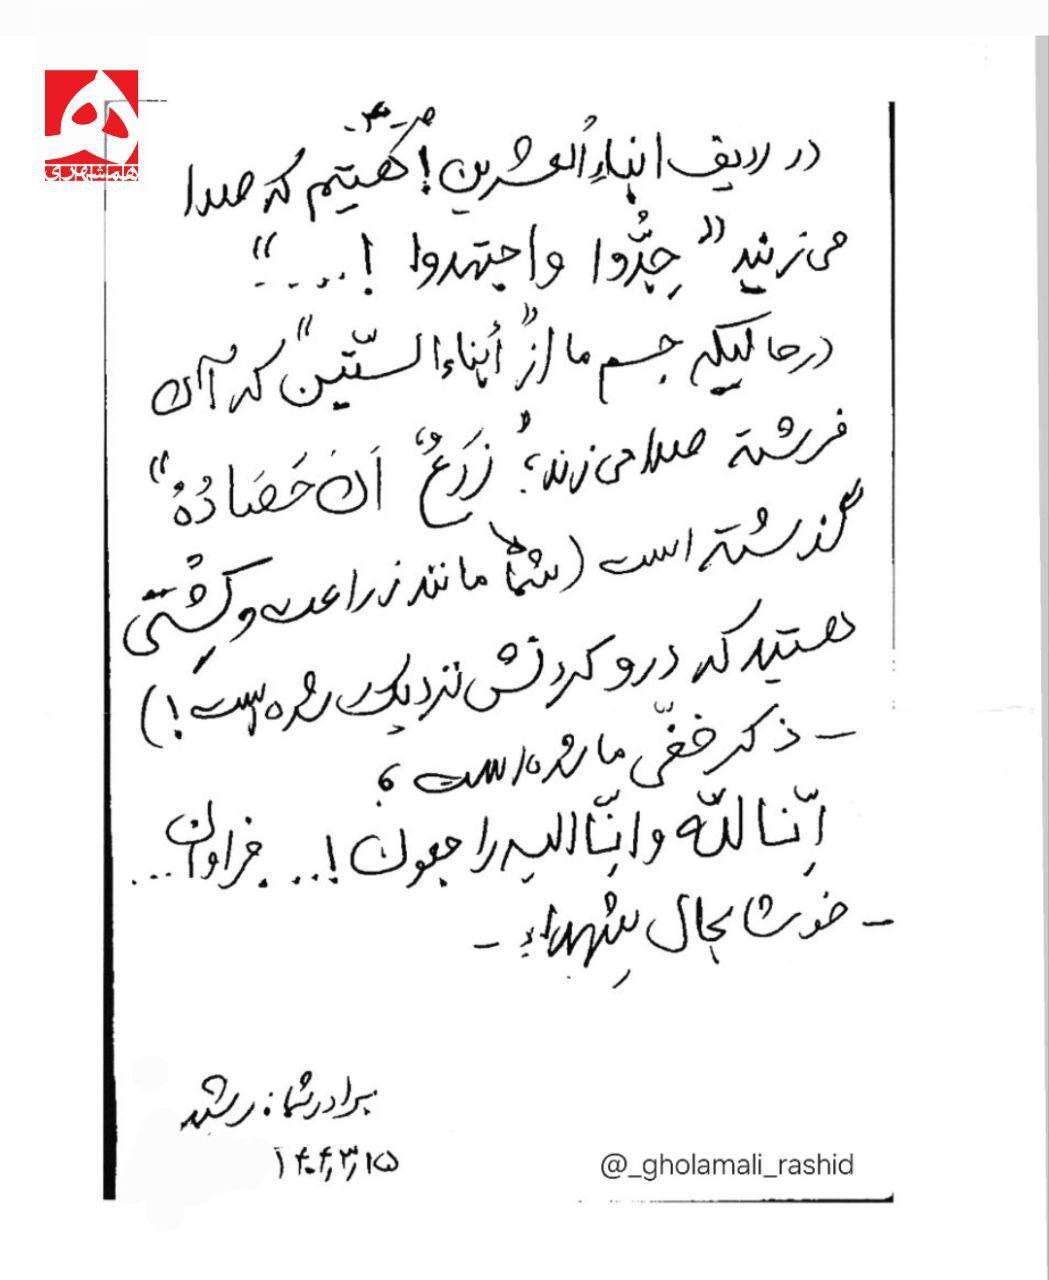 همشهری
-۳-
در ردیف ابناءُ العشرین! گفتیم که صدا
می‌زنند "جِدُّوا واجتهدوا !...."
در حالیکه جسم ما از "أبناء الستّین" که آن
فرشته صدا می‌زند؛ "زَرَعٌ اَنَ حَصَادُهُ"
گذشته است (شما مانند زراعت و کِشْتی
هستید که درو کردنش نزدیک شده است!)
– ذکر خفّی ما شده است؛
اِنّا لله وانّا الیه راجعون!... فراوان...
– خوشا بحال شهداء –
برادر شما: رشید
۱۴۰۴٫۳٫۱۵
@_gholamali_rashid